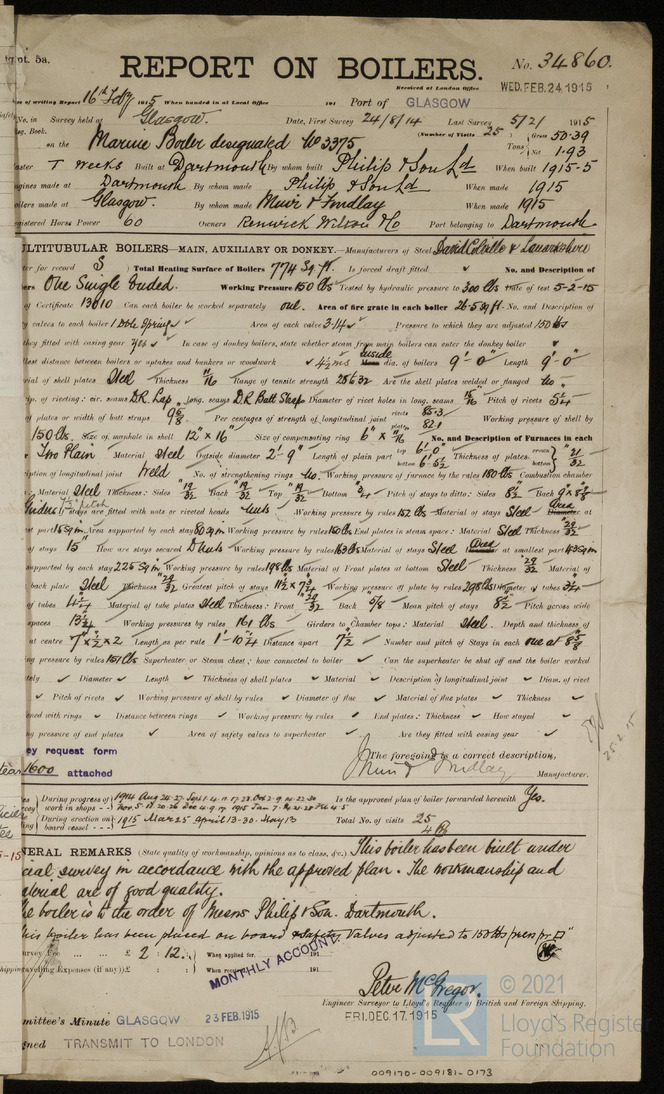 Rpt. 5a.
REPORT ON BOILERS.
No. 34860.
Received at London Office WED. FEB. 24 1915
of writing Report 16th Feby 1915 When handed in at Local Office 191 Port of GLASGOW
No. in Survey held at Glasgow. Date, First Survey 24/8/14 Last Survey 5/2/ 1915
Reg. Book. (Number of Visits 25) Gross 50.39
on the Marine Boiler designated No 3375. Tons Net 1.93
Master T Weeks Built at Dartmouth By whom built Philip & Son Ld When built 1915-5
Engines made at Dartmouth By whom made Philip & Son Ld When made 1915
Boilers made at Glasgow. By whom made Muir & Findlay When made 1915
Registered Horse Power 60 Owners Renwick Wilton & Co Port belonging to Dartmouth
MULTITUBULAR BOILERS—MAIN, AUXILIARY OR DONKEY.—Manufacturers of Steel David Colville & Lanarkshire
for record S Total Heating Surface of Boilers 774 Sq. ft. Is forced draft fitted ✓ No. and Description of
One Single Ended. Working Pressure 150 lbs Tested by hydraulic pressure to 300 lbs Date of test 5-2-15
of Certificate 13010 Can each boiler be worked separately one. Area of fire grate in each boiler 26.5 sq ft. No. and Description of
valves to each boiler 1 Dble Spring ✓ Area of each valve 3.14 ✓ Pressure to which they are adjusted 150 lbs
they fitted with easing gear Yes ✓ In case of donkey boilers, state whether steam from main boilers can enter the donkey boiler ✓
distance between boilers or uptakes and bunkers or woodwork 4½ ins Inside dia. of boilers 9'-0" Length 9'-0"
of shell plates Steel Thickness 11/16 Range of tensile strength 28 to 32 Are the shell plates welded or flanged No
of riveting: cir. seams D.R. Lap long. seams D.R. Butt Straps Diameter of rivet holes in long. seams 15/16 Pitch of rivets 5¼
of plates or width of butt straps Per centages of strength of longitudinal joint rivets 85.3 plates 82.1 Working pressure of shell by
150 lbs. Size of manhole in shell 12" x 16" Size of compensating ring 6" x 11/16 No. and Description of Furnaces in each
Two Plain Material Steel Outside diameter 2'-9" Length of plain part top 6'-0" bottom 6'-5½ Thickness of plates crown bottom 21/32
of longitudinal joint Weld No. of strengthening rings No. Working pressure of furnace by the rules 180 lbs Combustion chamber
Material Steel Thickness: Sides 19/32 Back 19/32 Top 19/32 Bottom ¾ Pitch of stays to ditto: Sides 8½ Back
stays are fitted with nuts or riveted heads Nuts Working pressure by rules 152 lbs Material of stays Steel Area at
Area supported by each stay 80 sq in Working pressure by rules 150 lbs End plates in steam space: Material Steel Thickness 29/32
of stays 15" How are stays secured D Nuts Working pressure by rules 163 lbs Material of stays Steel Area at smallest part
supported by each stay 225 sq in Working pressure by rules 198 lbs Material of Front plates at bottom Steel Thickness 29/32 Material of
back plate Steel Thickness 29/32 Greatest pitch of stays 11½ x 7¾ Working pressure of plate by rules 298 lbs Diameter of tubes 3¼
of tubes Material of tube plates Steel Thickness: Front 29/32 Back 5/8 Mean pitch of stays 8½ Pitch across wide
spaces 13¼ Working pressures by rules 161 lbs Girders to Chamber tops: Material Steel. Depth and thickness of
at centre 7" x ½ x 2 Length as per rule 1'-10¾ Distance apart 7½ Number and pitch of Stays in each one at 8⅝
pressure by rules 151 lbs Superheater or Steam chest; how connected to boiler ✓ Can the superheater be shut off and the boiler worked
✓ Diameter ✓ Length ✓ Thickness of shell plates ✓ Material ✓ Description of longitudinal joint ✓ Diam. of rivet
✓ Pitch of rivets ✓ Working pressure of shell by rules ✓ Diameter of flue ✓ Material of flue plates ✓ Thickness ✓
with rings ✓ Distance between rings ✓ Working pressure by rules ✓ End plates: Thickness ✓ How stayed ✓
pressure of end plates ✓ Area of safety valves to superheater ✓ Are they fitted with easing gear ✓
request form
1600 attached
The foregoing is a correct description,
Muir & Findlay Manufacturer.
25.2.15
During progress of work in shops 1914 Aug 24-27 Sept 1-4-11-17-23 Oct 2-9-14-22-30 Nov. 5-13-20-26 Dec 4-9-17 1915 Jan 7 Is the approved plan of boiler forwarded herewith Yes.
During erection on board vessel 1915 Mar 25 April 13-30 May 13 Total No. of visits 25
GENERAL REMARKS (State quality of workmanship, opinions as to class, &c.) This boiler has been built under
special survey in accordance with the approved plan. The workmanship and
material are of good quality.
The boiler is to the order of Messrs Philip & Son. Dartmouth.
This boiler has been placed on board & safety valves adjusted to 150 lbs
Survey Fee £ 2 : 12 : When applied for, 191
Travelling Expenses (if any) £ : : When received, 191
MONTHLY ACCOUNT
Peter McGregor.
Engineer Surveyor to Lloyd's Register of British and Foreign Shipping.
Committee's Minute GLASGOW 23 FEB. 1915 FRI. DEC. 17 1915
TRANSMIT TO LONDON
© 2021
Lloyd's Register
Foundation
LR
009170-009181-0173